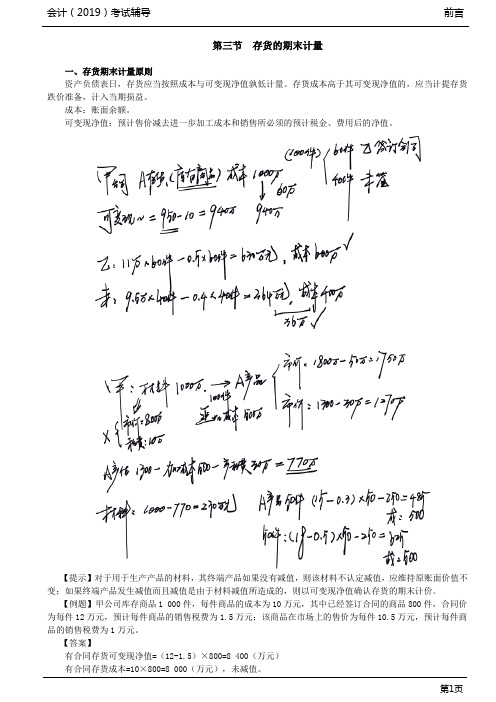 会计（2019）考试辅导 前言
第三节 存货的期末计量
一、存货期末计量原则
资产负债表日，存货应当按照成本与可变现净值孰低计量。存货成本高于其可变现净值的，应当计提存货
跌价准备，计入当期损益。
成本：账面余额。
可变现净值：预计售价减去进一步加工成本和销售所必须的预计税金、费用后的净值。
(100件) 60件 乙签订合同
甲公司 A存货(库存商品) 成本1000万 40件 未签
60万
可变现~=950-10=940万 940万
乙：11万×60件-0.5×60件=630万元，成本600万√
未：9.5万×40件-0.4×40件=364万元，成本400万
36万√
市价：1800万-50万=1750万
甲：材料1000万→A产品
100件
市价=800万 成本500万 市价：1300-30万=1270万
X 税费：10万
A产估1300-加工成本500-产税费30万=770万
材料：1000-770=230万元 A产品50件(15-0.3)×50-250=485
成：500
50件：(18-0.5)×50-250=625
成=500
【提示】对于用于生产产品的材料，其终端产品如果没有减值，则该材料不认定减值，应维持原账面价值不
变；如果终端产品发生减值而且减值是由于材料减值所造成的，则以可变现净值确认存货的期末计价。
【例题】甲公司库存商品1 000件，每件商品的成本为10万元，其中已经签订合同的商品800件，合同价
为每件12万元，预计每件商品的销售税费为1.5万元；该商品在市场上的售价为每件10.5万元，预计每件商
品的销售税费为1万元。
【答案】
有合同存货可变现净值=（12-1.5）×800=8 400（万元）
有合同存货成本=10×800=8 000（万元），未减值。
第1页